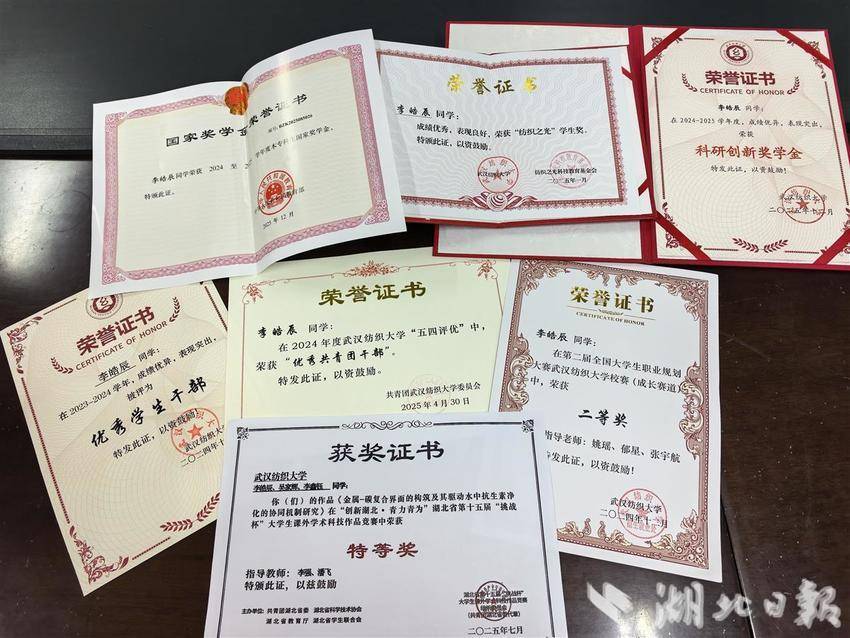 国家奖学金荣誉证书
编号:BZK2025085028
李皓辰同学荣获 2024 至
学年度本专科生国家奖学金。
特颁此证。
2025 年 12 月
荣誉证书
李皓辰 同学:
成绩优秀，表现良好，荣获“纺织之光”学生奖。
特颁此证，以资鼓励。
武汉纺织大学 纺织之光科技教育基金会
二〇二五年一月
荣誉证书
CERTIFICATE OF HONOR
李皓辰 同学:
在 2024-2025 学年度，成绩优异，表现突出，
荣获
科研创新奖学金
特发此证，以资鼓励!
武汉纺织大学
二〇二五年十二月
荣誉证书
CERTIFICATE OF HONOR
李皓辰 同学:
在 2023-2024 学年，成绩优异，表现突出，
被评为
优秀学生干部
特发此证，以资鼓励!
武汉纺织大学
二〇二四年十
荣誉证书
李皓辰 同学:
在 2024 年度武汉纺织大学“五四评优”中，
荣获“优秀共青团干部”。
特发此证，以资鼓励。
共青团武汉纺织大学委员会
2025 年 4 月 30 日
荣誉证书
CERTIFICATE OF HONOR
李皓辰 同学:
在第二届全国大学生职业规划
大赛武汉纺织大学校赛（成长赛道）
中，荣获
二等奖
指导老师: 姚瑶、郁星、张宇航
特发此证，以资鼓励!
武汉纺织大学
二〇二四年十二月
获奖证书
武汉纺织大学
李皓辰、 同学:
你（们）的作品（金属-碳复合界面的构筑及其驱动水中抗生素净
化的协同机制研究）在“创新湖北·青力青为”湖北省第十五届“挑战
杯”大学生课外学术科技作品竞赛中荣获
特等奖
指导教师: 李强、潘飞
特颁此证，以兹鼓励
主办单位: 共青团湖北省委 湖北省科学技术协会
湖北省教育厅 湖北省学生联合会
湖北省第十五届“挑战杯”
大学生课外学术科技作品竞赛
组织委员会
（共青团湖北省委代章）
二〇二五年七月
湖北日报